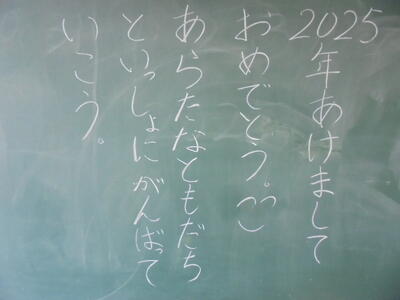 2025
年あけまして
おめでとう。
あらたなともだち
といっしょにがんばって
いこう。